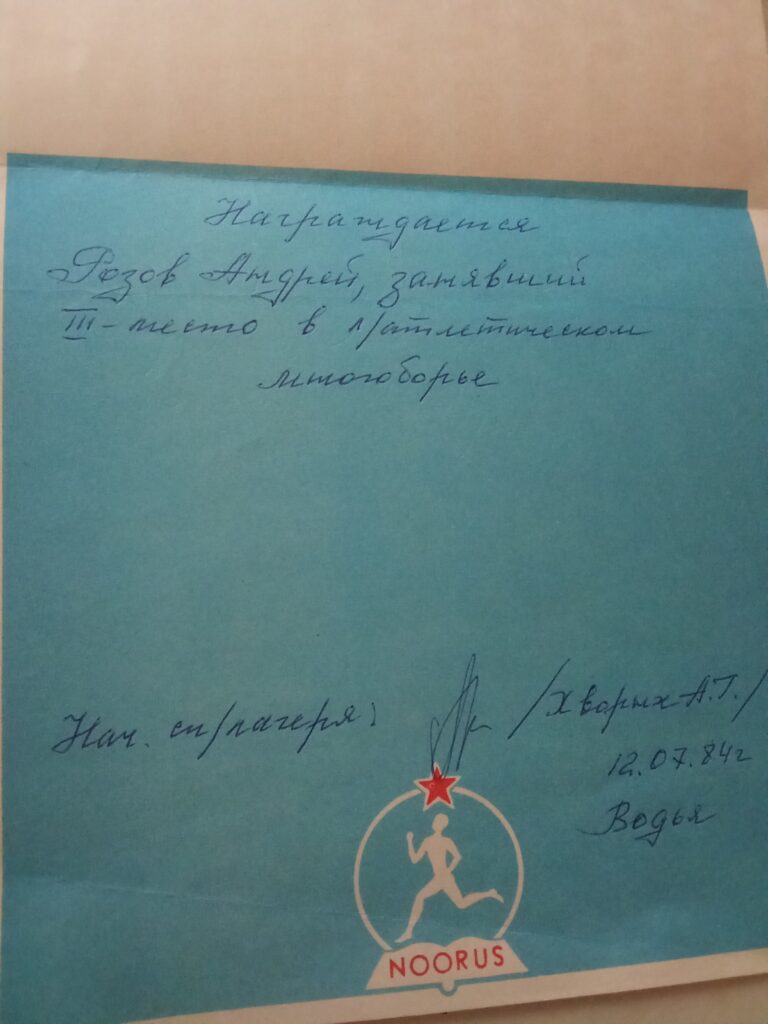 Награждается
Розов Андрей, занявший
III-место в л/атлетическом
многоборье
Нач. сп/лагеря: /Хворых А.Г./
12.07.84г
Водья
NOORUS